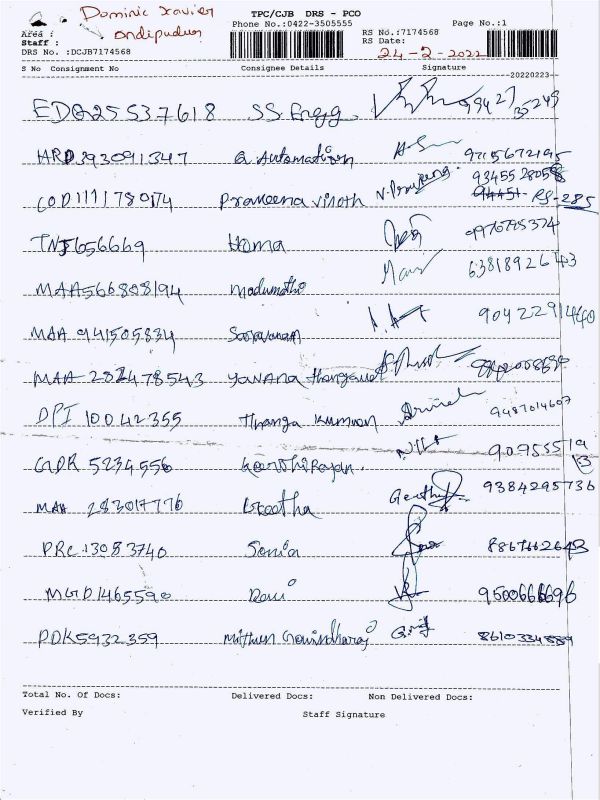 Dominic Xavier TPC/CJB DRS - PCO
Area : ondipudur Phone No.:0422-3505555 Page No.:1
Staff : RS No.:7174568
DRS No. :DCJB7174568 RS Date: 24-2-2022
S No Consignment No Consignee Details Signature
20220223
EDQ25537618 SS Engg. 99427 35249
HRD393091347 a Automation 9715672195
COD1111780174 Praveena vinoth 9345528058
RS-285
TNJ656669 Homa 9976795374
MAA566808194 Madumathi 6381892643
MAA 941505834 Saravanan 9042291460
MAA 282478543 Yavana thangavel
DPI 10042355 Thanga kumaran 9487014607
GDK 5234556 9095551913
MAA 283017776 Geetha Geetha 9384295736
PRC13083740 Sonia 8867662643
MGD1465590 Ravi 9500666696
PDK5932359 Mithun Govindharaj 8610334889
Total No. Of Docs: Delivered Docs: Non Delivered Docs:
Verified By Staff Signature